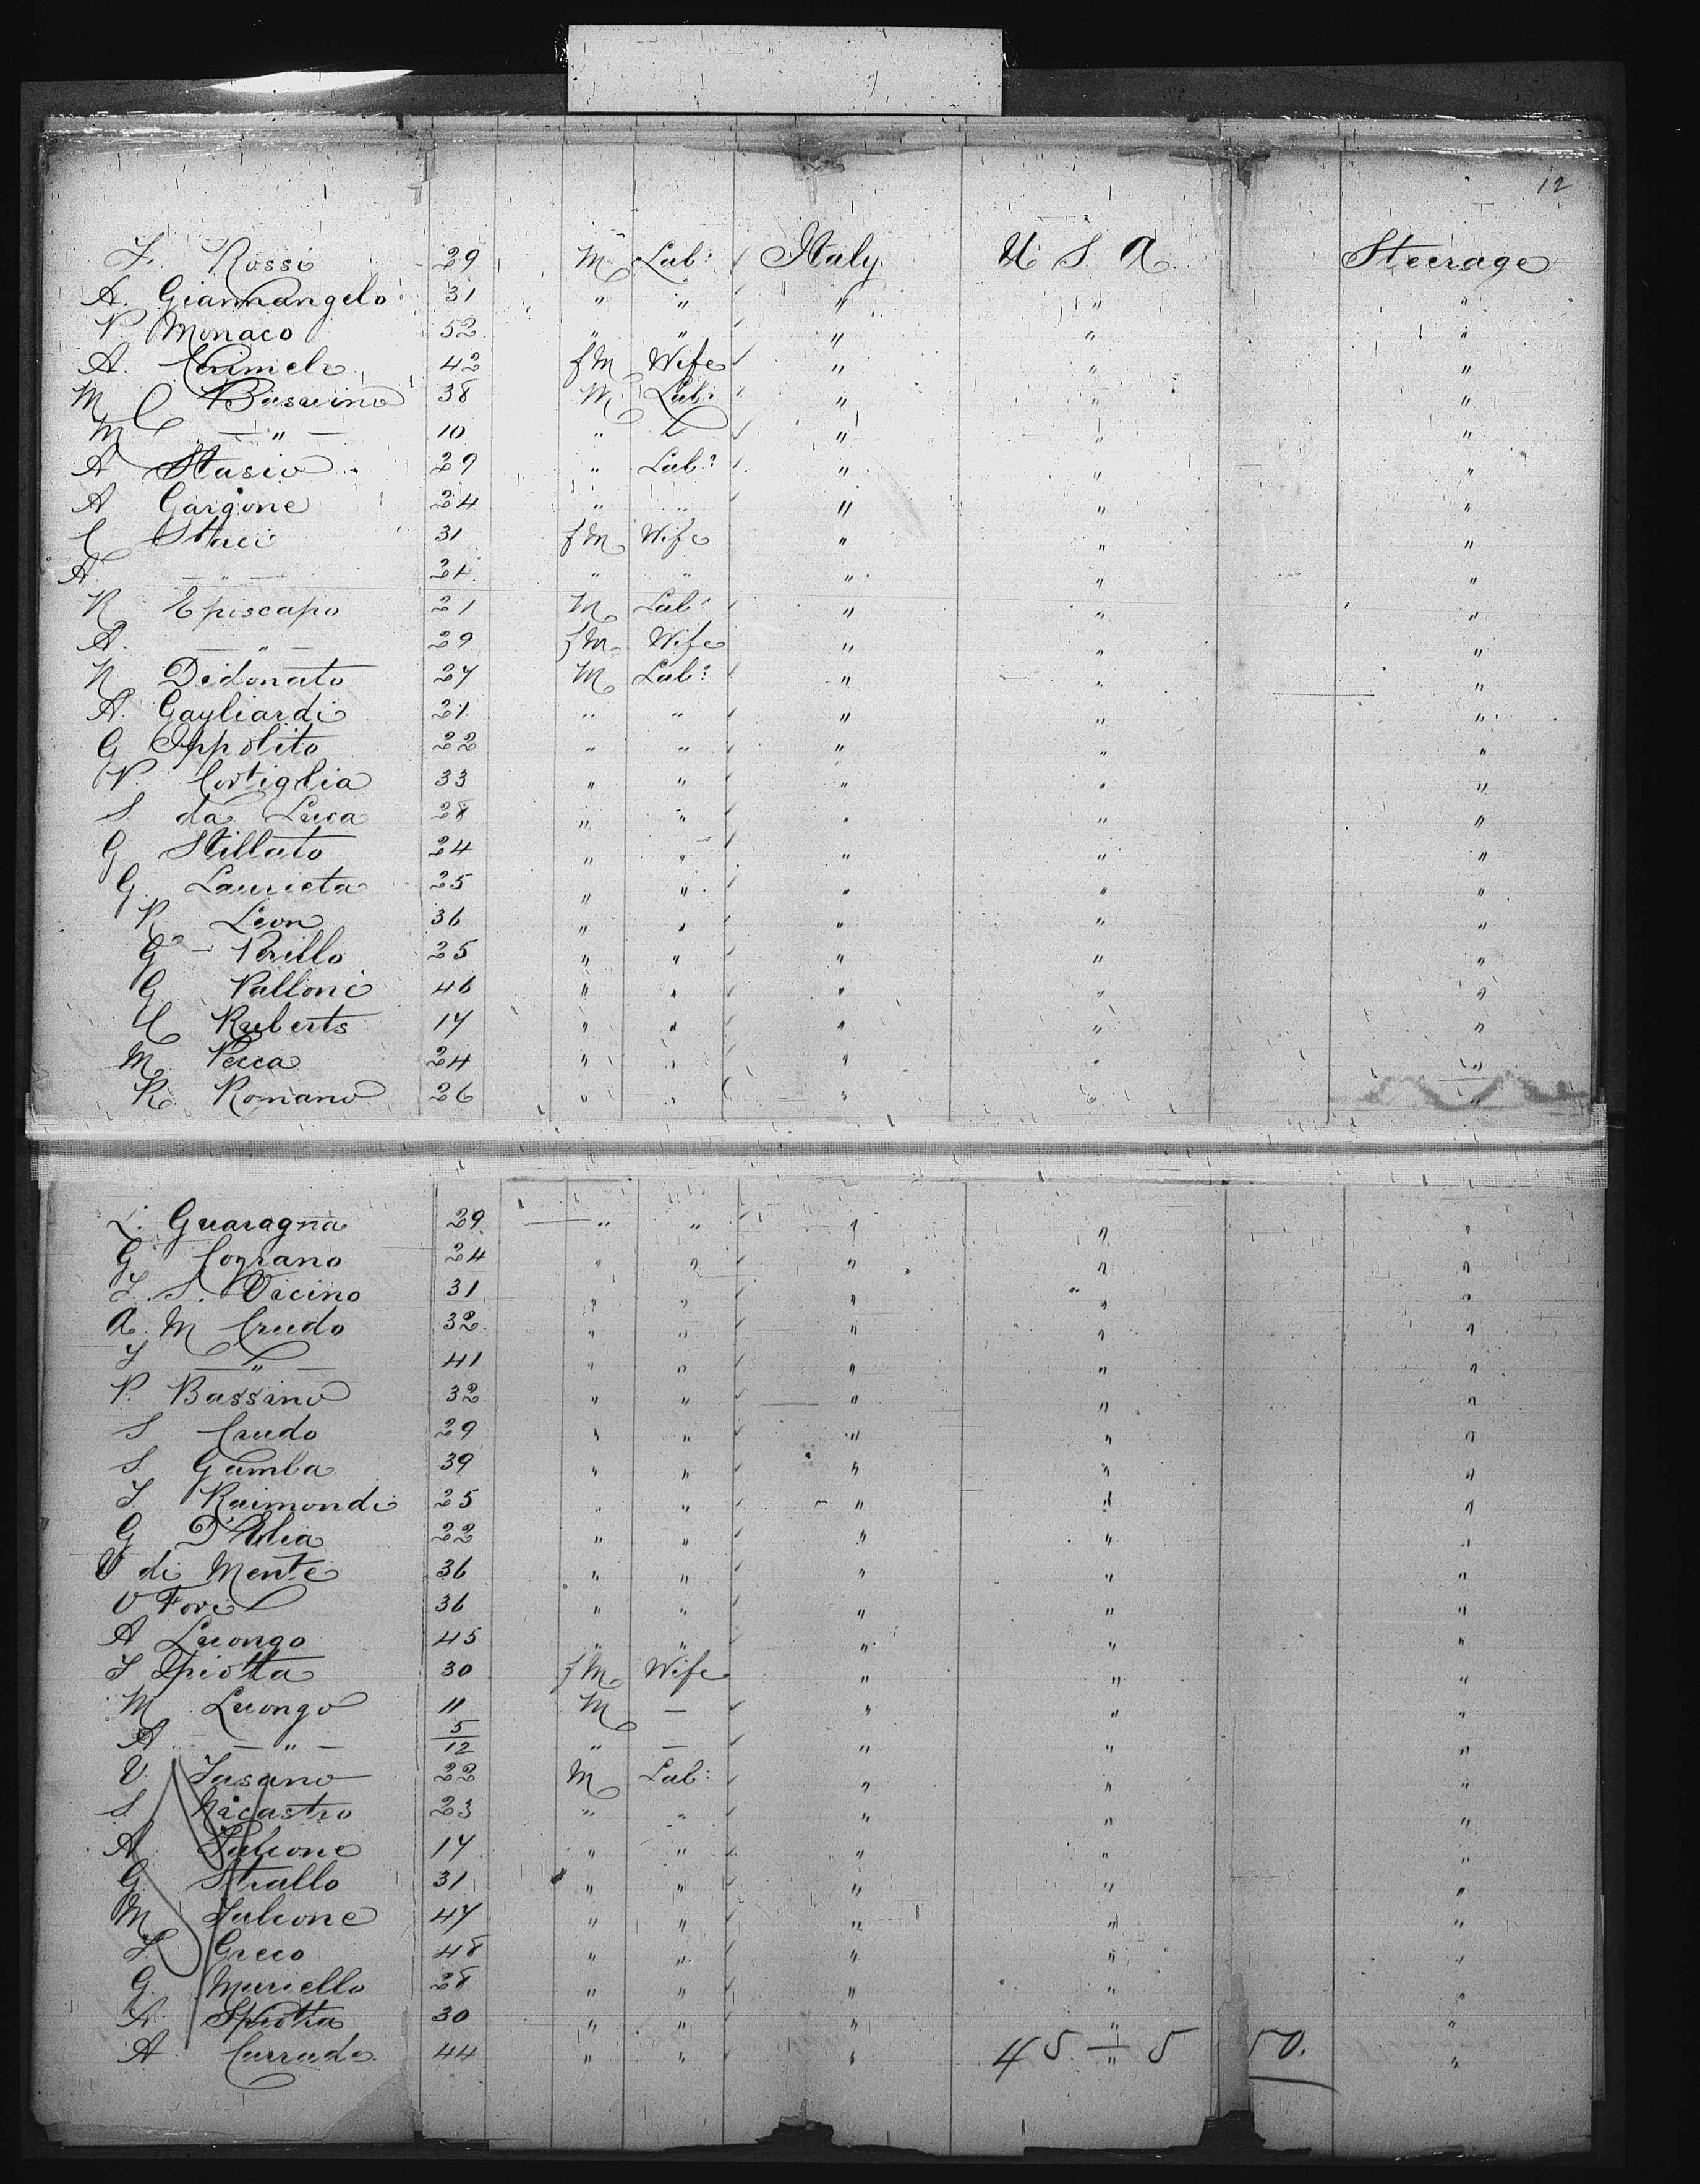 12
F. Rossi 29 M Lab: ✓ Italy U S A Steerage
A. Giannangelo 31 " " ✓ " " "
P Monaco 52 " " ✓ " " "
A. 42 fM Wife ✓ " " "
M C 38 M Lab: " " " "
M — " — 10 " ✓ " " "
A Stasio 29 " Lab: ✓ " " "
A Gargone 24 " " ✓ " " "
C 31 fM Wife " " "
A — " — 21 " " " " "
R Episcapo 21 M Lab: ✓ " " "
A. — " — 29 fM Wife " " "
N Didonato 27 M Lab: ✓ " " "
A. Gagliardi 21 " " ✓ " " "
G Ippolito 22 " " ✓ " " "
V. Cortiglia 33 " " ✓ " " "
S. da Luca 28 " " ✓ " " "
G Stillato 24 " " ✓ " " "
G. Laurieta 25 " " ✓ " " "
R Leon 36 " " ✓ " " "
G Perillo 25 " " ✓ " " "
G Palloni 46 " " ✓ " " "
C Ruberts 17 " " ✓ " " "
M. Pecca 24 " " ✓ " " "
R. Romano 26 " " ✓ " " "
L. Guaragna 29 " " ✓ " " "
G Cograno 24 " " ✓ " " "
F. S. Vicino 31 " " ✓ " " "
A. M Crudo 32 " " ✓ " " "
F — " — 41 " " ✓ " " "
P. Bassino 32 " " ✓ " " "
S Crudo 29 " " ✓ " " "
S. Gamba 39 " " ✓ " " "
F Raimondi 25 " " ✓ " " "
G D'Elia 22 " " ✓ " " "
V di Mente 36 " " ✓ " " "
V Fori 36 " " ✓ " " "
A Luongo 45 " " ✓ " " "
F Spiotta 30 fM Wife " " "
M Luongo 11 M — ✓ " " "
A — " — 5/12 " — ✓ " " "
V. Fasano 22 M Lab: ✓ " " "
S. Nicastro 23 " " ✓ " " "
A Falcone 17 " " ✓ " " "
G Strallo 31 " " ✓ " " "
M Falcone 47 " " ✓ " " "
F Greco 48 " " ✓ " " "
G. Muriello 28 " " ✓ " " "
A. Spiotta 30 " " ✓ " " "
A Currado 44 " " ✓ " " "
45 — 5 50.